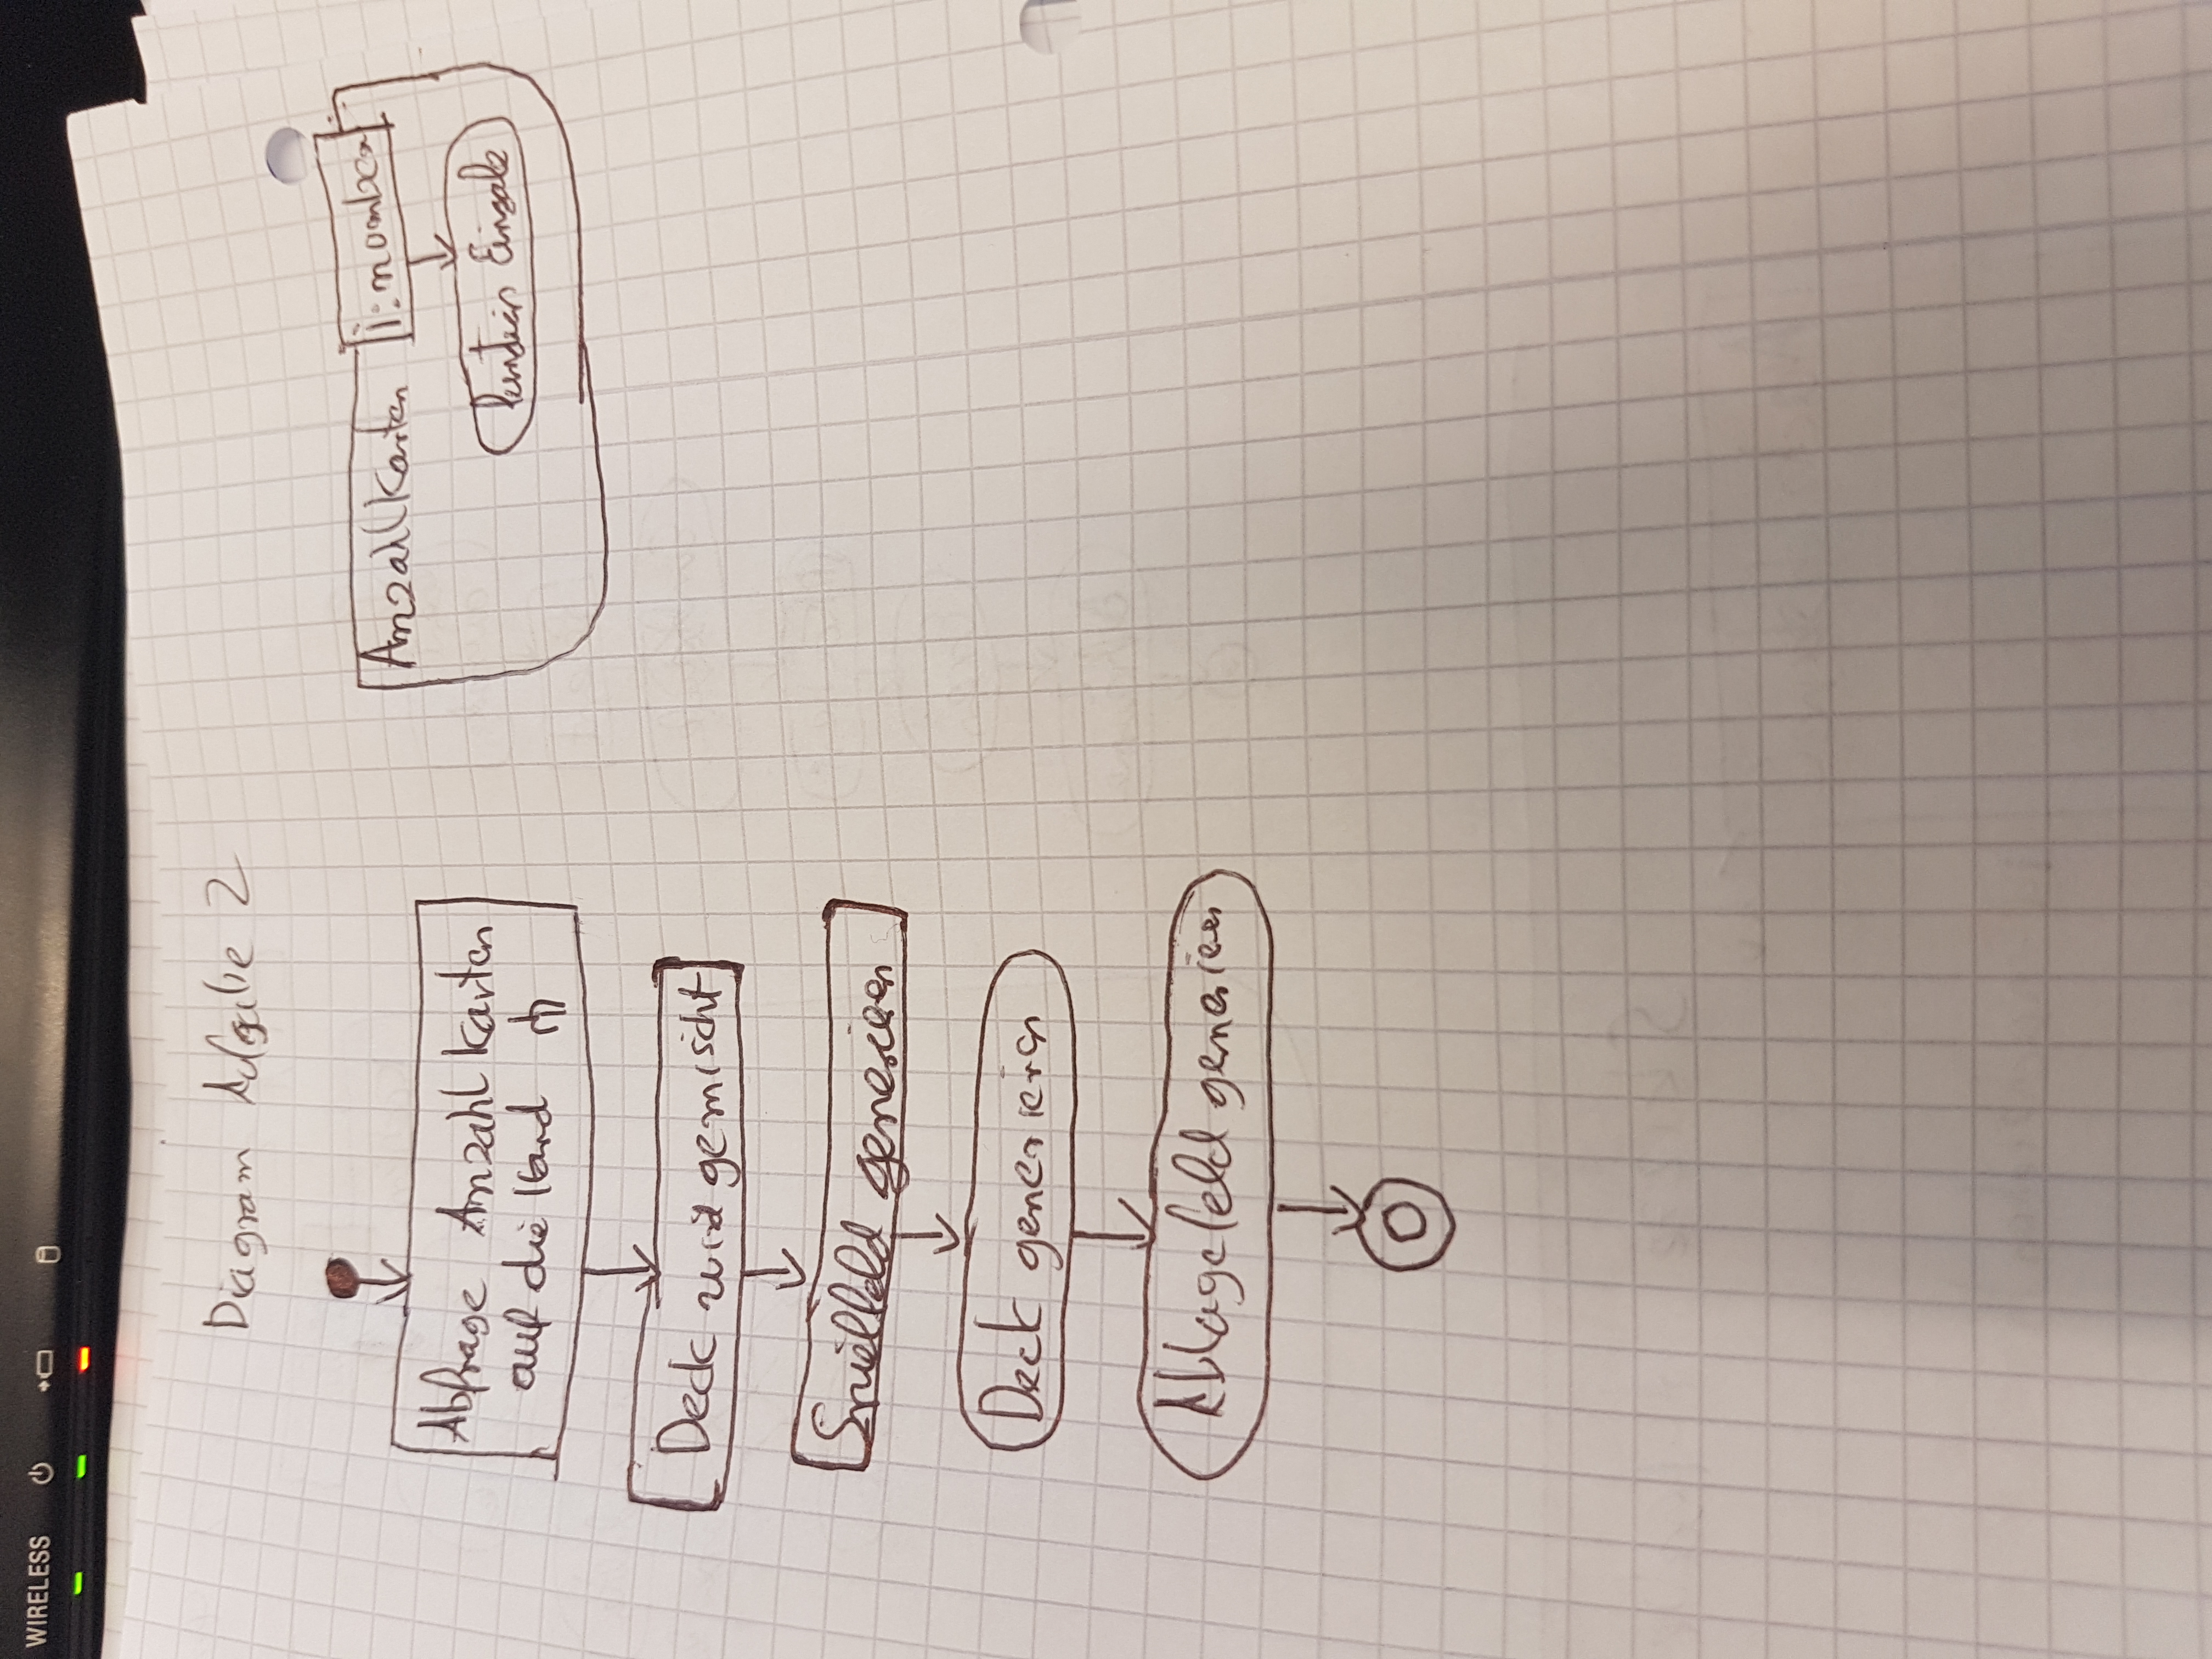 WIRELESS
Diagram Aufgabe 2
Abfrage Anzahl Karten
auf die Hand
Deck wird gemischt
Spielfeld generieren
Deck generieren
Ablagefeld generieren
Anzahl Karten
i: number